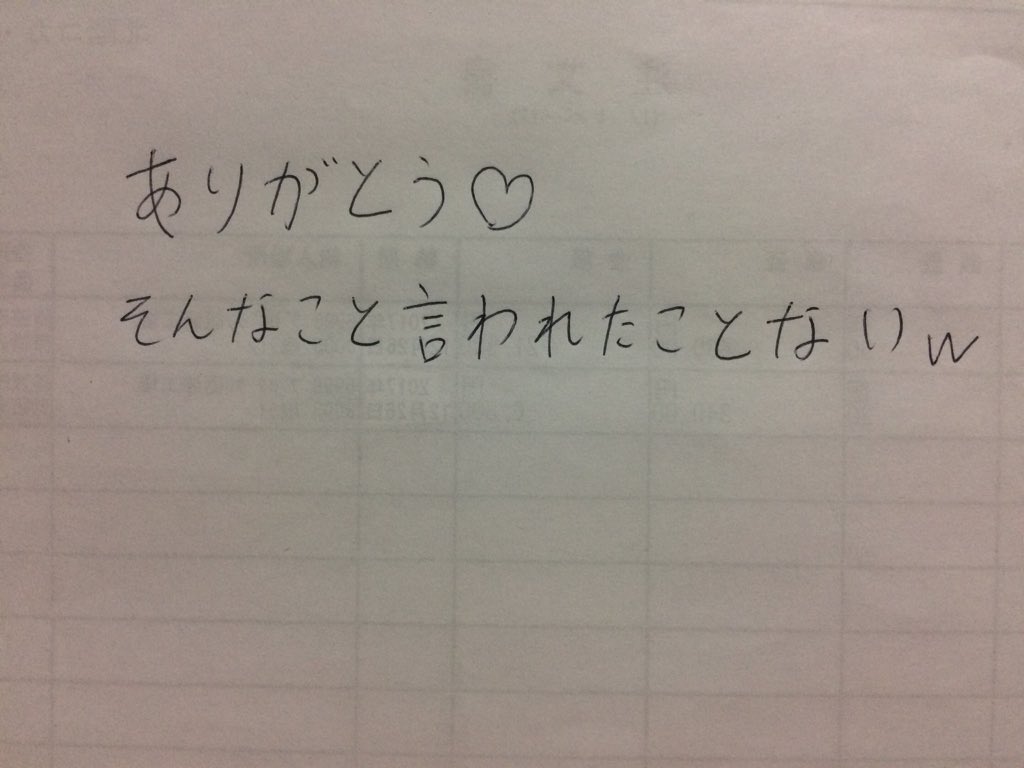 ありがとう♡
そんなこと言われたことないw